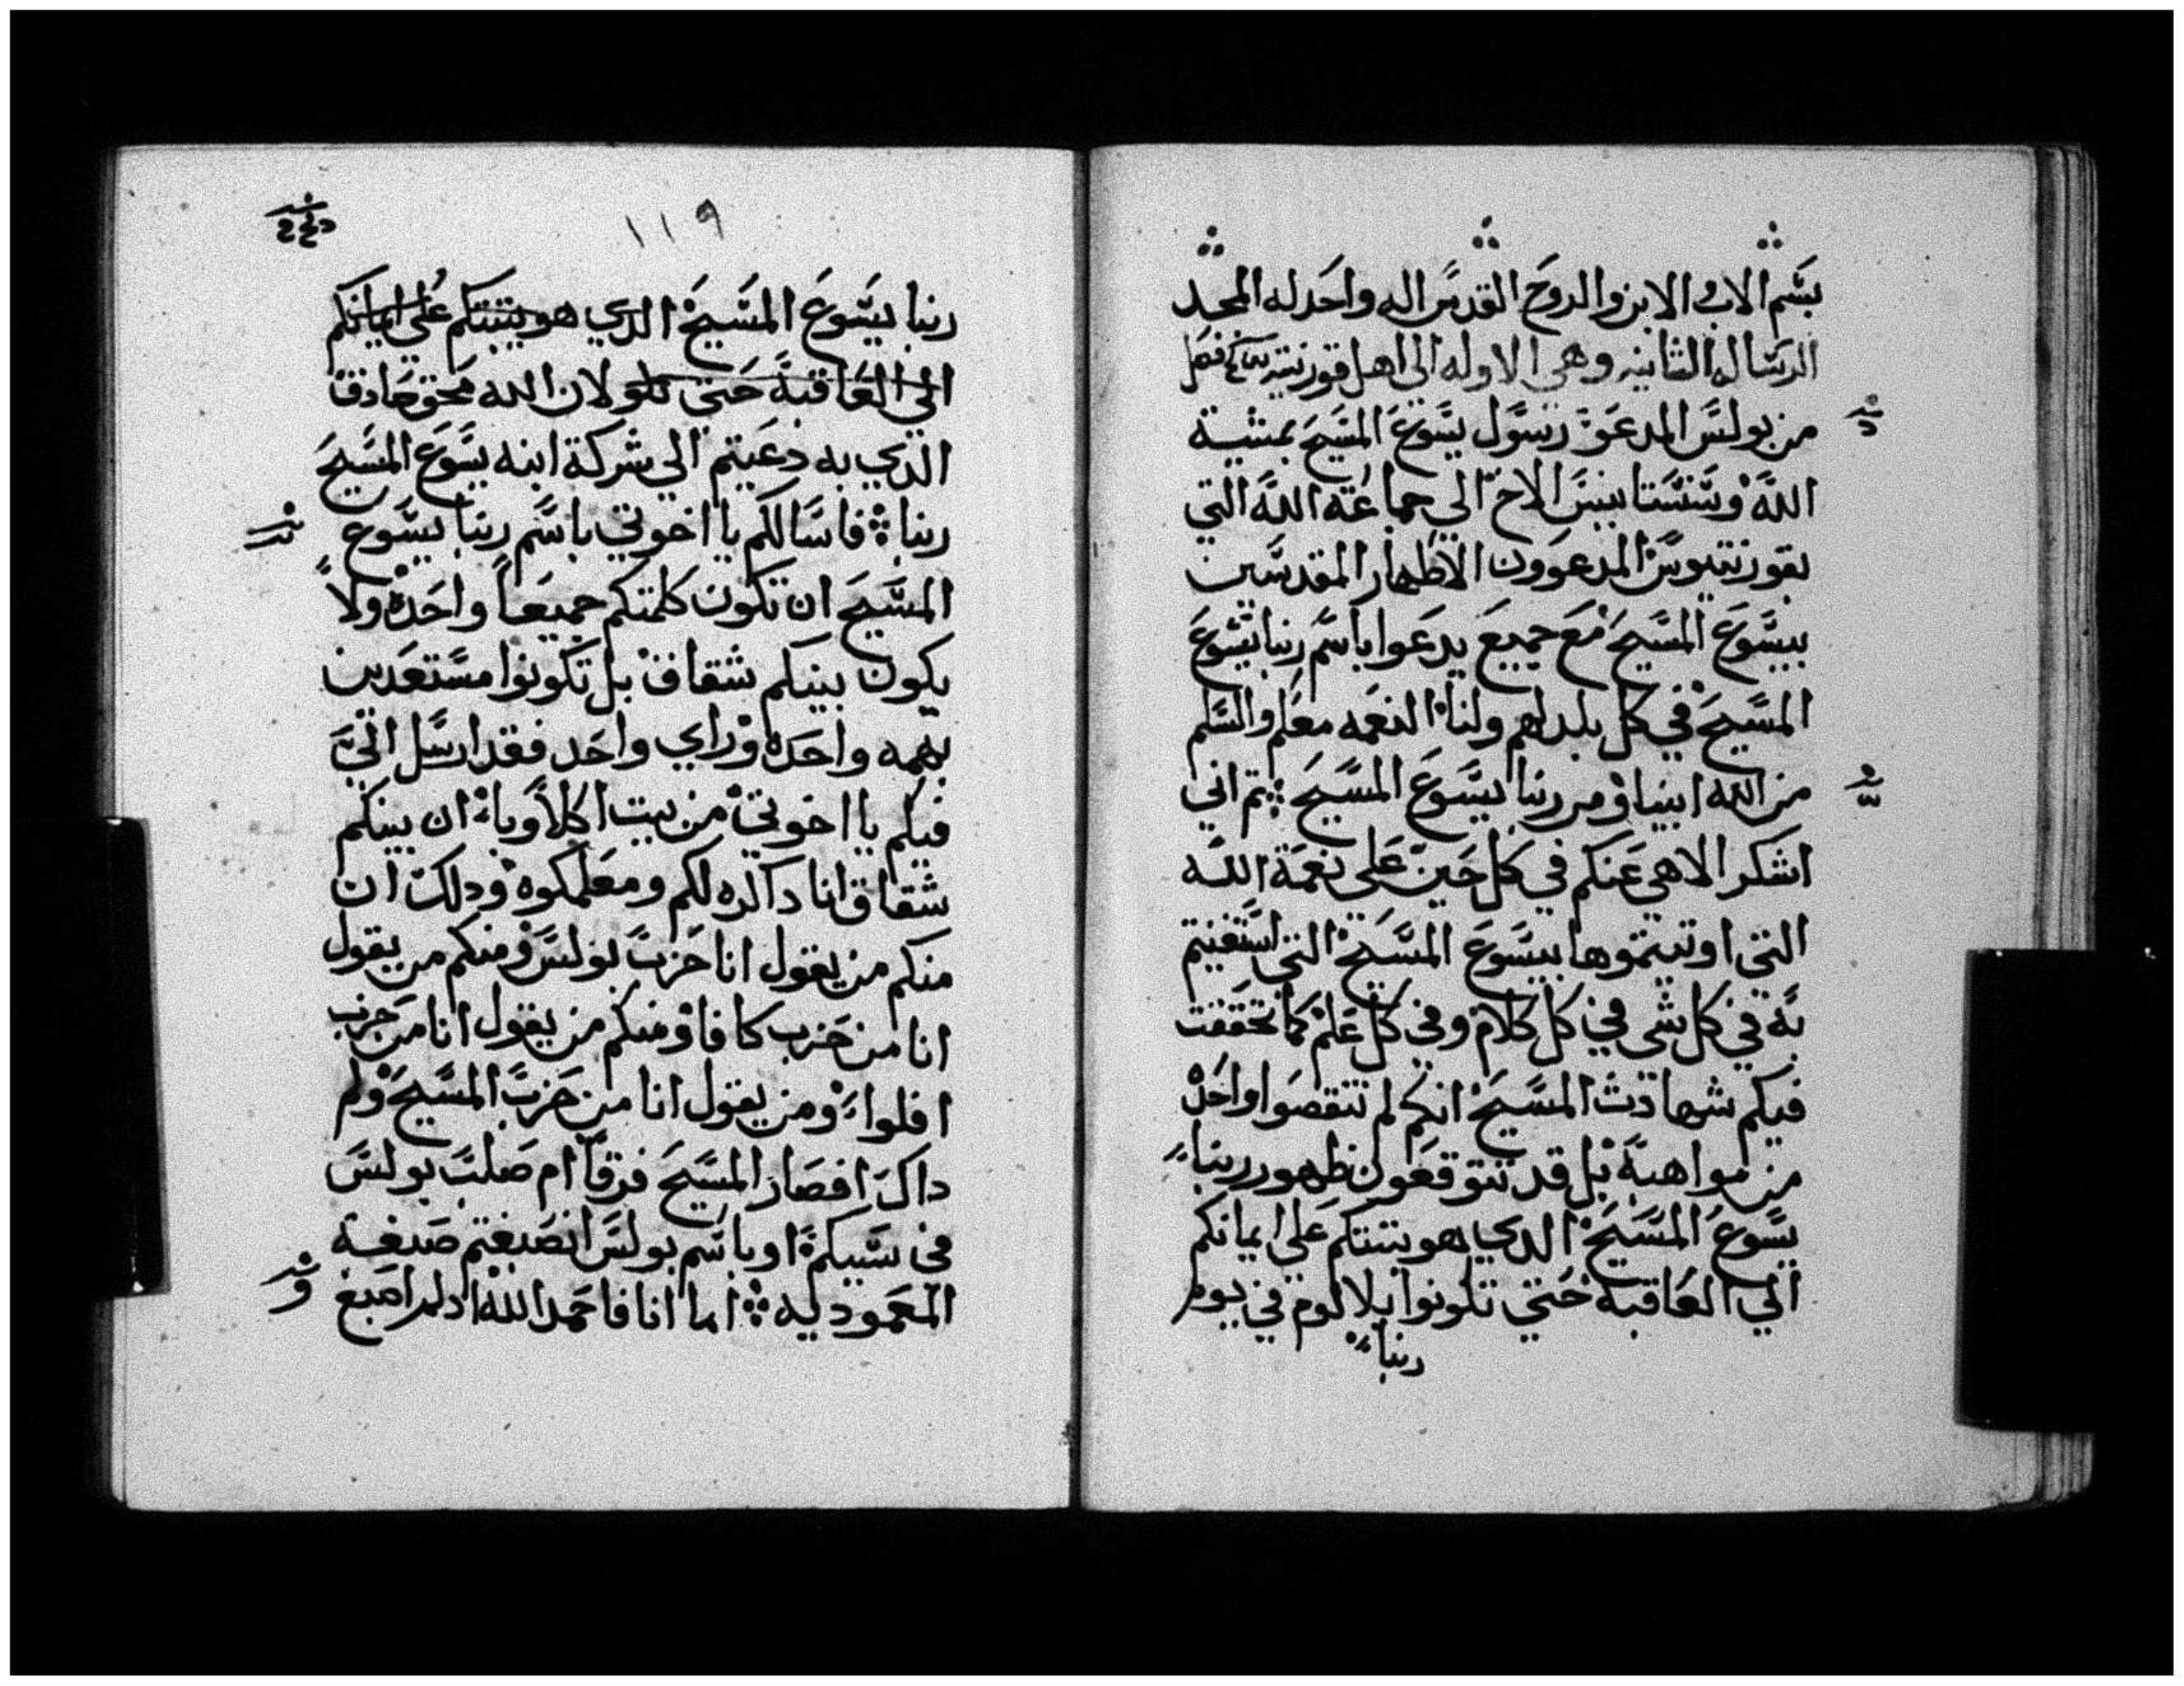 بسم الاب والابن والروح القدس اله واحد له المجد
الرساله الثانيه وهي الاوله الي اهل قورنتيه فصل
من بولس المدعو رسول يسوع المسيح بمشية
الله وسسستانيس الاخ الي جماعة الله التي
بقورنتيوس المدعوون الاطهار المقدسين
بيسوع المسيح مع جميع يدعوا باسم ربنا يسوع
المسيح في كل بلد لهم ولنا النعمه معكم والسلم
من الله ابينا ومن ربنا يسوع المسيح ⁘ تم اني
اشكر الاهي عنكم في كل حين علي نعمة الله
التي اوتيتموها بيسوع المسيح التي استغنيتم
به في كل شي في كل كلام وفي كل علم كما تحققت
فيكم شهادت المسيح انكم لم تنقصوا واحده
من مواهبه بل قد تتوقعون ظهور ربنا
يسوع المسيح الدي هو يتبتكم علي ايمانكم
الي العاقبه حتي تكونوا بلا لوم في يوم
ربنا
١١٩
ربنا يسوع المسيح الدي هو يتبتكم علي ايمانكم
الي العاقبة حتي تكو لان الله محق صادقا
الدي به دعيتم الي شركة ابنه يسوع المسيح
ربنا ⁘ فاسالكم يا اخوتي باسم ربنا يسوع
المسيح ان تكون كلمتكم جميعا واحده ولا
يكون بينكم شقاق بل تكونوا مستعدين
بهمه واحده وراي واحد فقد ارسل الي
فيكم يا اخوتي من بيت اكلاويا ان بينكم
شقاق انا داكره لكم ومعلمكوه ودلك ان
منكم من يقول انا حزب بولس ومنكم من يقول
انا من حزب كافا ومنكم من يقول انا من حزب
افلوا ومن يقول انا من حزب المسيح ولم
داك افصار المسيح فرقا ام صلب بولس
في سببكم او باسم بولس انصبغتم صبغة
المعموديه ⁘ اما انا فاحمد الله اد لم اصبغ